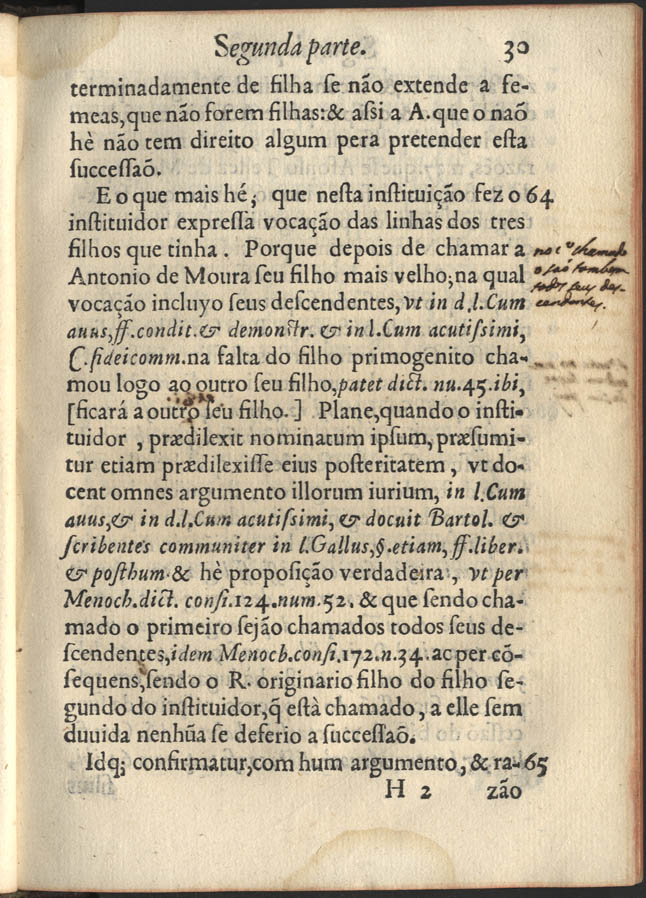 Segunda parte. 30
terminadamente de filha ſe não extende a fe-
meas,que não forem filhas:& aſsi a A.que o naõ
hè não tem direito algum pera pretender eſta
ſucceſſaõ.
E o que mais hé, que neſta inſtituição fez o 64
inſtituidor expreſſa vocação das linhas dos tres
filhos que tinha. Porque depois de chamar a
Antonio de Moura ſeu filho mais velho;na qual
vocação incluyo ſeus deſcendentes,vt in d.l.Cum
auus,ff.condit.& demonſtr. & in l.Cum acutiſsimi,
C.fideicomm.na falta do filho primogenito cha-
mou logo ao outro ſeu filho,patet dict. nu.45.ibi,
[ficará a outro ſeu filho.] Plane,quando o inſti-
tuidor , prædilexit nominatum ipſum,præſumi-
tur etiam prædilexiſſe eius poſteritatem , vt do-
cent omnes argumento illorum iurium, in l.Cum
auus,& in d.l.Cum acutiſsimi, & docuit Bartol. &
ſcribentes communiter in l.Gallus,§.etiam, ff.liber.
& poſthum.& hè propoſição verdadeira , vt per
Menoch.dict. conſi.124.num.52. & que ſendo cha-
mado o primeiro ſejão chamados todos ſeus de-
ſcendentes,idem Menoch.conſi.172.n.34.ac per cõ-
ſequens,ſendo o R. originario filho do filho ſe-
gundo do inſtituidor,q̃ eſtà chamado, a elle ſem
duuida nenhũa ſe deferio a ſucceſſaõ.
Idq; confirmatur,com hum argumento, & ra- 65
H 2 zão
chamado
o são tambem
todos seus des-
cendentes.